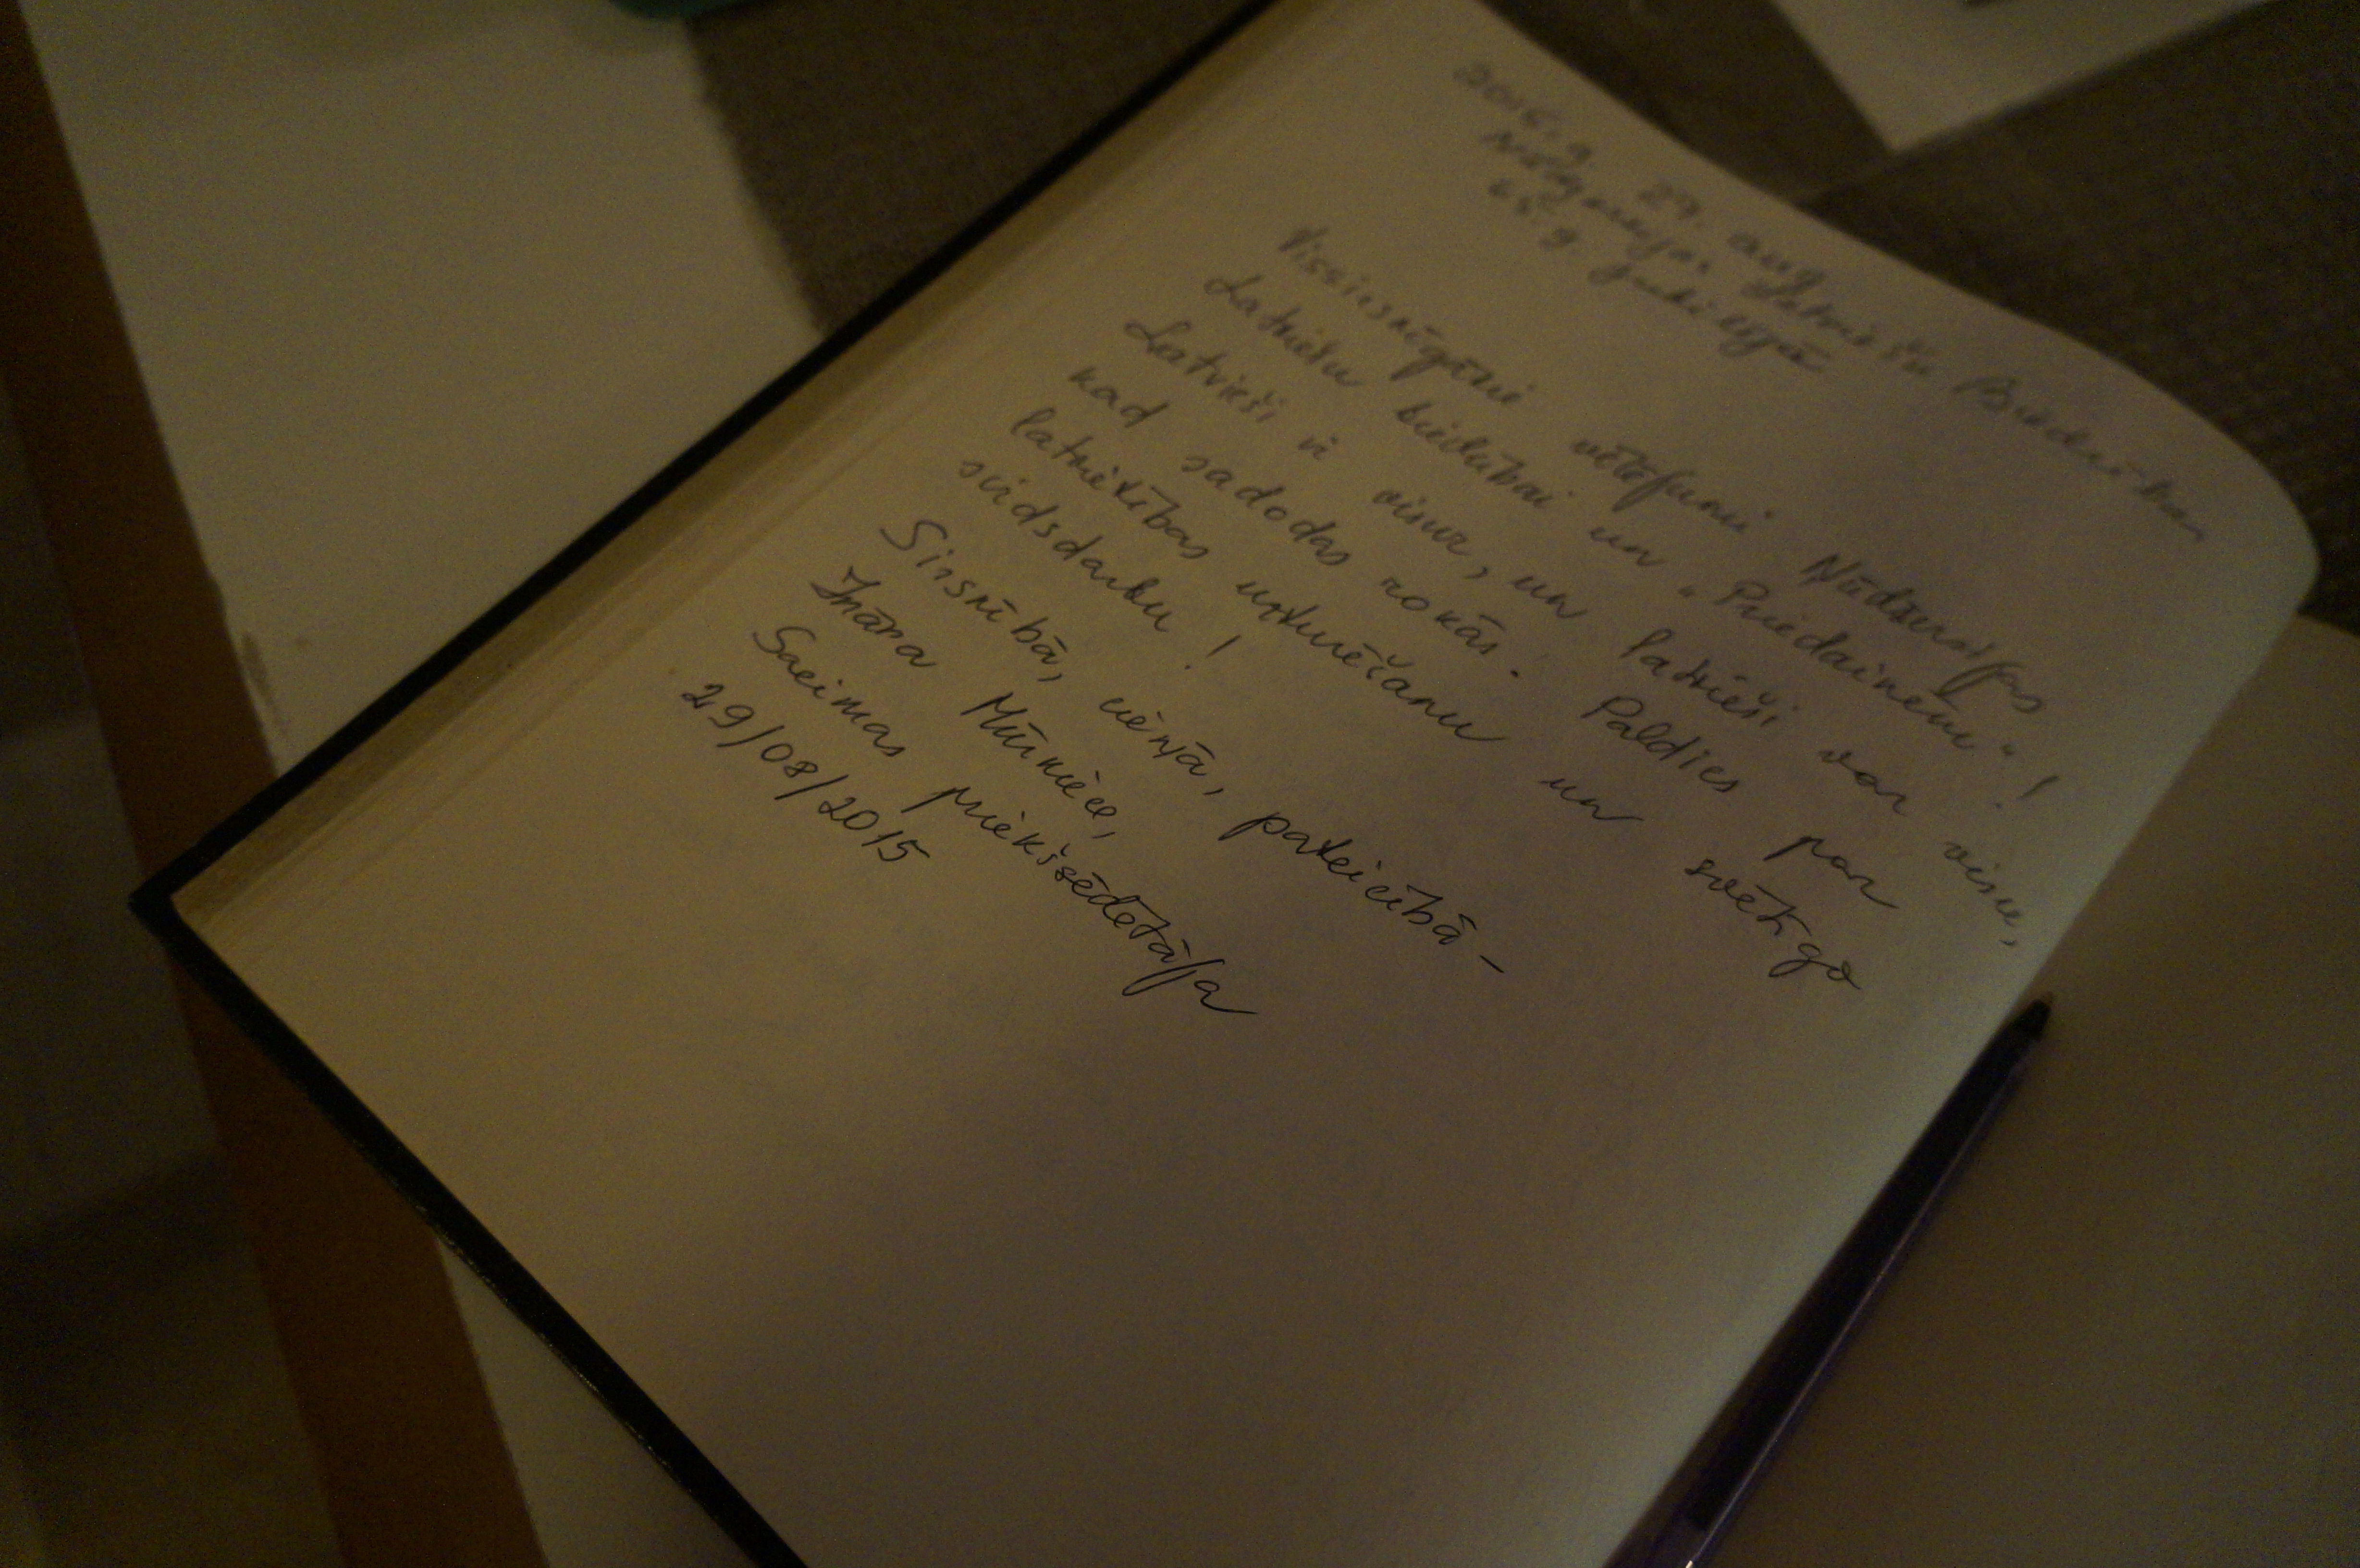 2015. g 29. aug
Ņūdžersijas Latviešu Biedrības
65. g. Jubilejā
Vissirsnīgākie vēlējumi Ņūdžersijas
Latviešu biedrībai un "Priedainēm"!
Latvieši ir visur, un latvieši var visu,
kad sadodas rokās. Paldies par
latvietības uzturēšanu un svētīgo
sirdsdarbu!
Sirsnībā, cieņā, pateicībā –
Ināra Mūrniece,
Saeimas priekšsēdētāja
29/08/2015